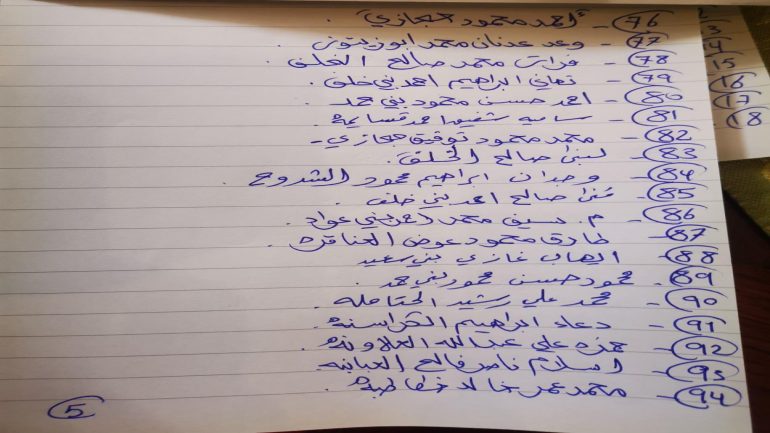 76 - أحمد محمود حجازي.
77 - وعد عدنان محمد ابوزيتون
78 - فراس محمد صالح الخلف.
79 - تهاني ابراهيم احمد بني خلف.
80 - احمد حسن محمود بني حمد
81 - ساميه شفيق احمد قسايمة.
82 - محمد محمود توفيق حجازي -
83 - لبنى صالح الخلف.
84 - وجدان ابراهيم محمود الشدوح.
85 - صالح احمد بني خلف.
86 - م. سيف محمد احمد بني عواد.
87 - طارق محمود عوض العناقره.
88 - ايهاب غازي بني سعيد
89 - محمود حسن محمود بني حمد.
90 - محمد علي رشيد الحتامله.
91 - دعاء ابراهيم الكراسنه.
92 - حمزه علي عبدالله العلاونه.
93 - اسلام ناصر فالح العبابنه
94 - محمد عمر خالد خطاطبه.
5
2
3
4
15
16
17
18